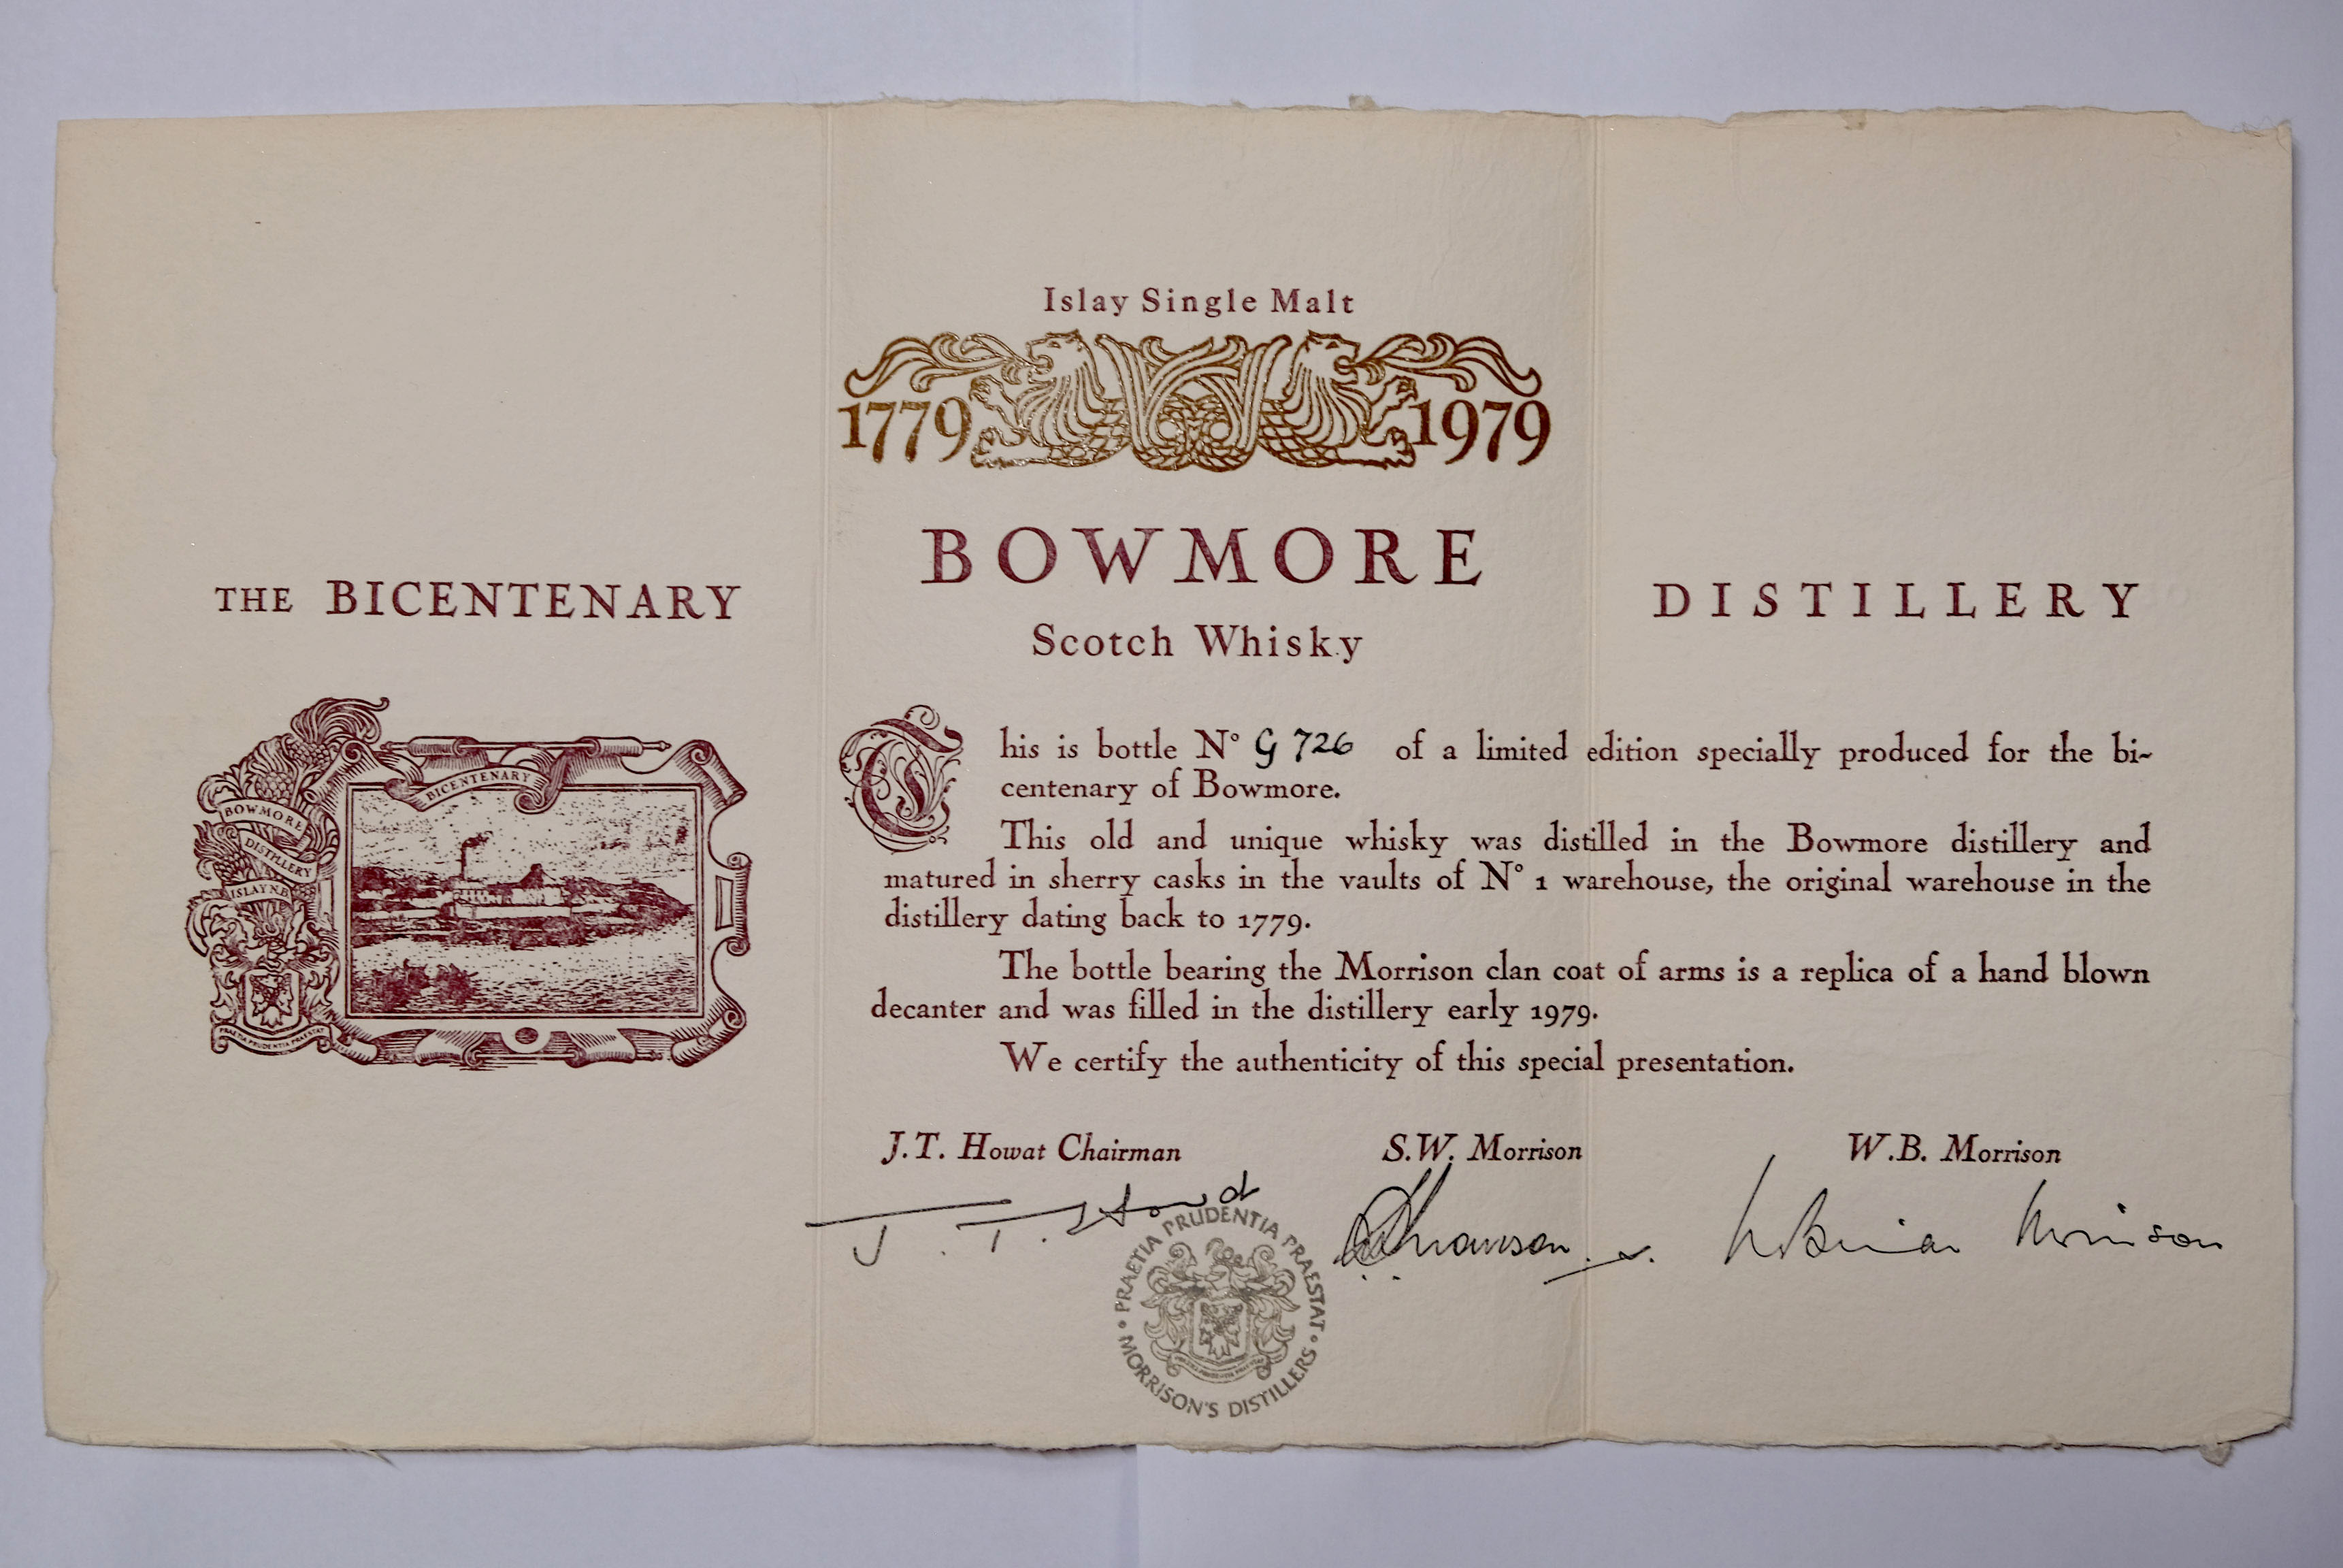 Islay Single Malt
1779 1979
THE BICENTENARY
BOWMORE
DISTILLERY
Scotch Whisky
BICENTENARY
BOWMORE
DISTILLERY
ISLAY N.B.
PRAETIA PRUDENTIA PRAESTAT
This is bottle Nº G 726 of a limited edition specially produced for the bi-
centenary of Bowmore.
This old and unique whisky was distilled in the Bowmore distillery and
matured in sherry casks in the vaults of Nº 1 warehouse, the original warehouse in the
distillery dating back to 1779.
The bottle bearing the Morrison clan coat of arms is a replica of a hand blown
decanter and was filled in the distillery early 1979.
We certify the authenticity of this special presentation.
J.T. Howat Chairman S.W. Morrison W.B. Morrison
J. T. Howat Morrison
• PRAETIA PRUDENTIA PRAESTAT •
MORRISON'S DISTILLERS